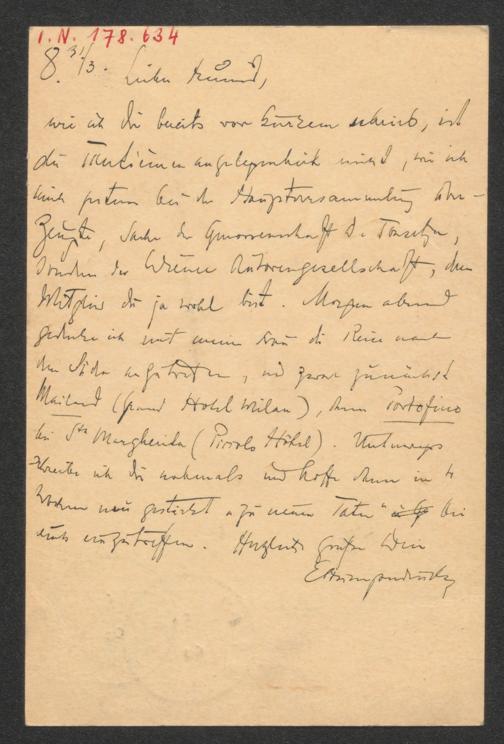 I.N. 178.634
8. 31/3. Lieber Freund,
wie ich dir bereits vor kurzem schrieb, ist
die Tantiemenangelegenheit nicht, wie ich
mich gestern bei der Hauptversammlung über-
zeugte, Sache der Genossenschaft D. Tonsetzer,
sondern der Wiener Autorengesellschaft, deren
Mitglied du ja wohl bist. Morgen abend
gedenke ich mit meiner Frau die Reise nach
dem Süden anzutreten, und zwar zunächst
Mailand (Grand Hotel Milan), dann Portofino
bei Sta Margherita (Piccolo Hôtel). Unterwegs
schreibe ich dir nochmals und hoffe dann in 4
Wochen neu gestärkt "zu neuen Taten" bei
euch einzutreffen. Herzliche Grüße Dein
EHumperdinck